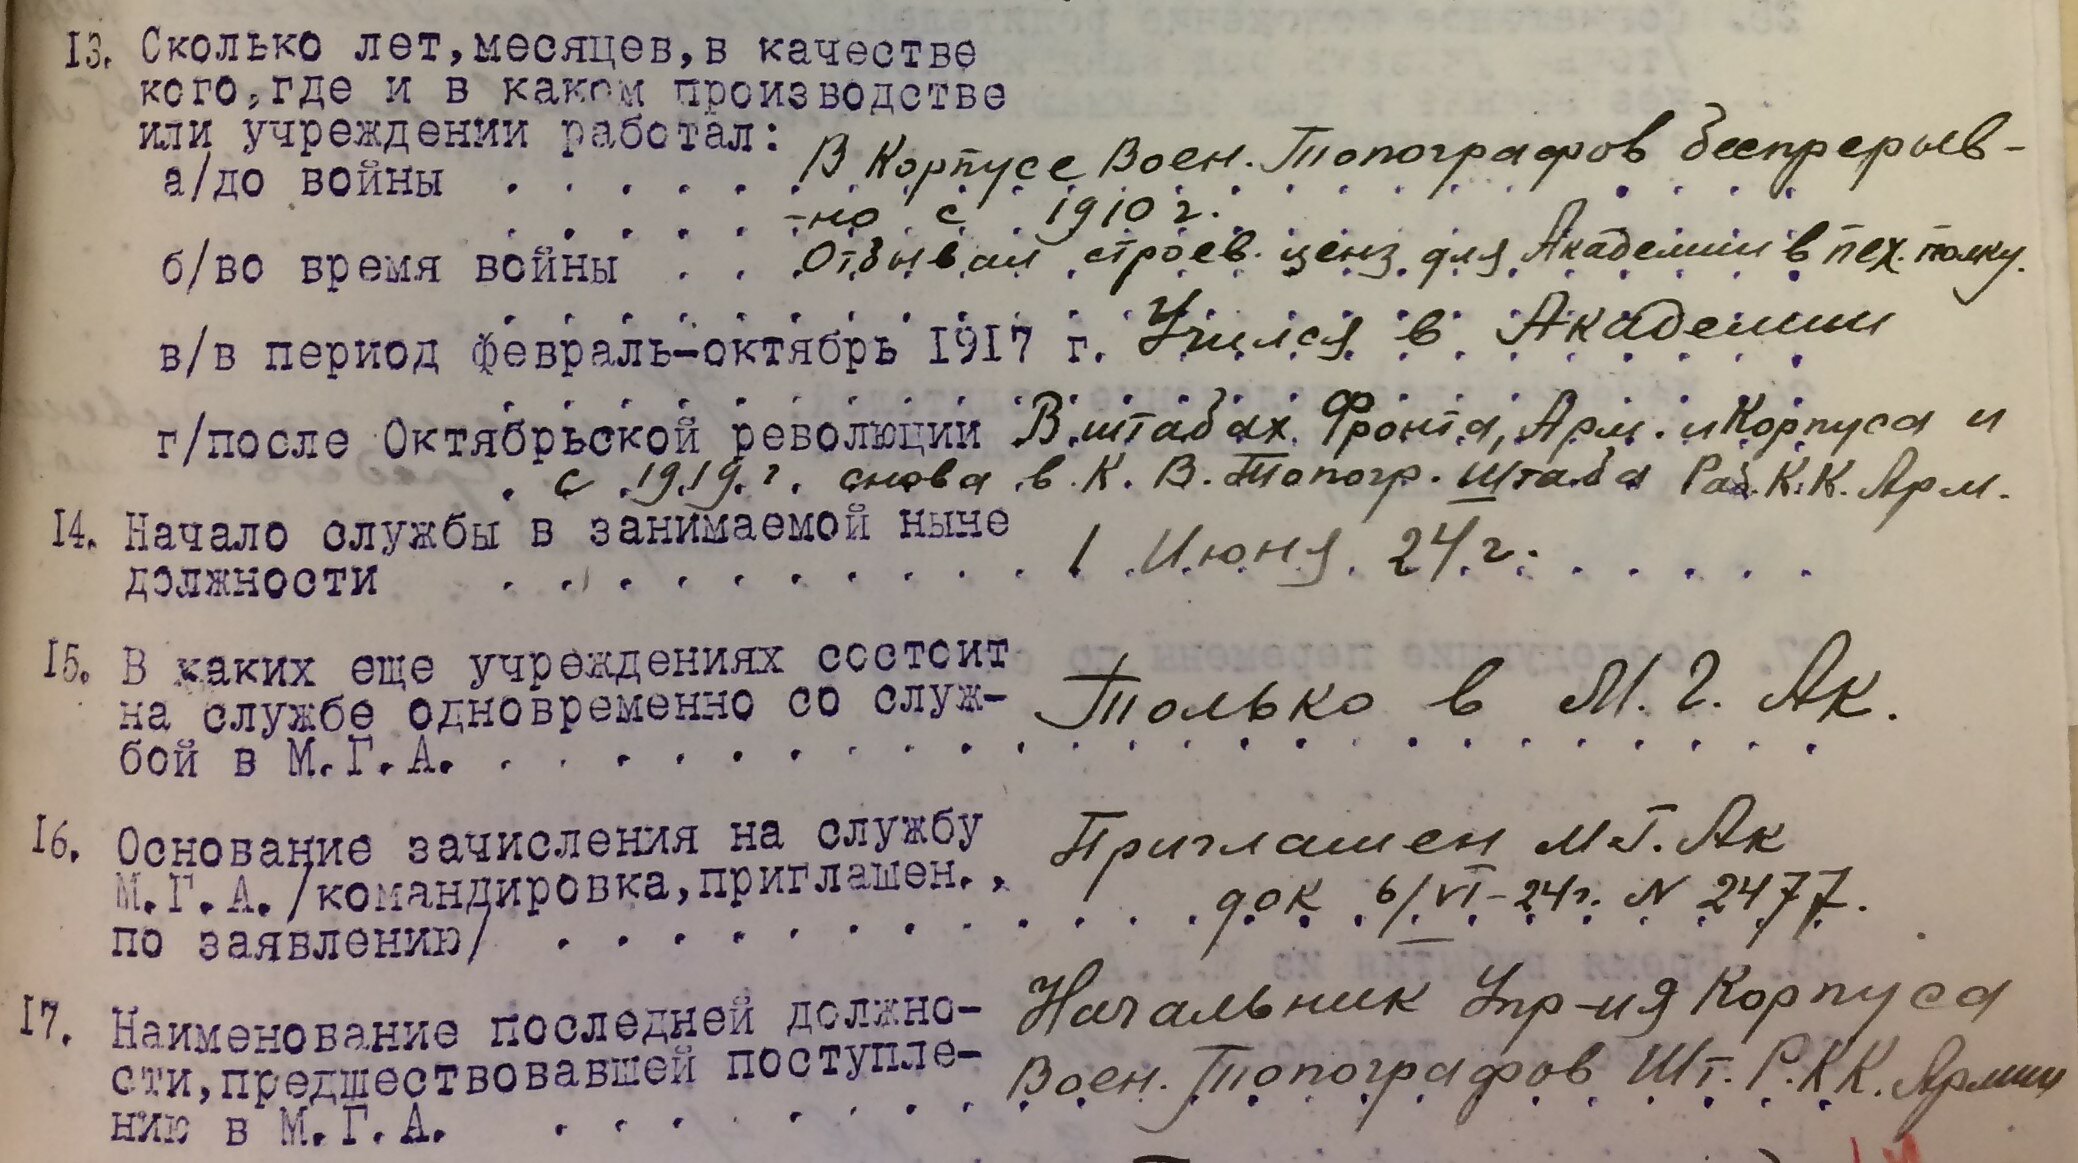 13. Сколько лет, месяцев, в качестве
кого, где и в каком производстве
или учреждении работал:
а/до войны . . . . . В Корпусе Воен. Топографов беспрерыв-
-но с 1910 г.
б/во время войны . . . Отбывал строев. ценз для Академии в пех. полку.
в/в период февраль-октябрь 1917 г. Учился в Академии
г/после Октябрьской революции В штабах Фронта, Арм. и Корпуса и
с 1919 г. снова в К. В. Топогр. Штаба Раб. К. К. Арм.
14. Начало службы в занимаемой ныне
должности . . . . . . . . . . 1 Июня 24 г.
15. В каких еще учреждениях состоит
на службе одновременно со служ- Только в М. Г. Ак.
бой в М.Г.А. . . . . . . . . .
16. Основание зачисления на службу Приглашен М.Г. Ак
М.Г.А./командировка, приглашен., док 6/VI-24 г. N 2477.
по заявлению/ . . . . . . . .
17. Наименование последней должно- Начальник Упр-ия Корпуса
сти, предшествовавшей поступле- Воен. Топографов Шт. Р.К.К. Армии
нию в М.Г.А. . . . . . . . .